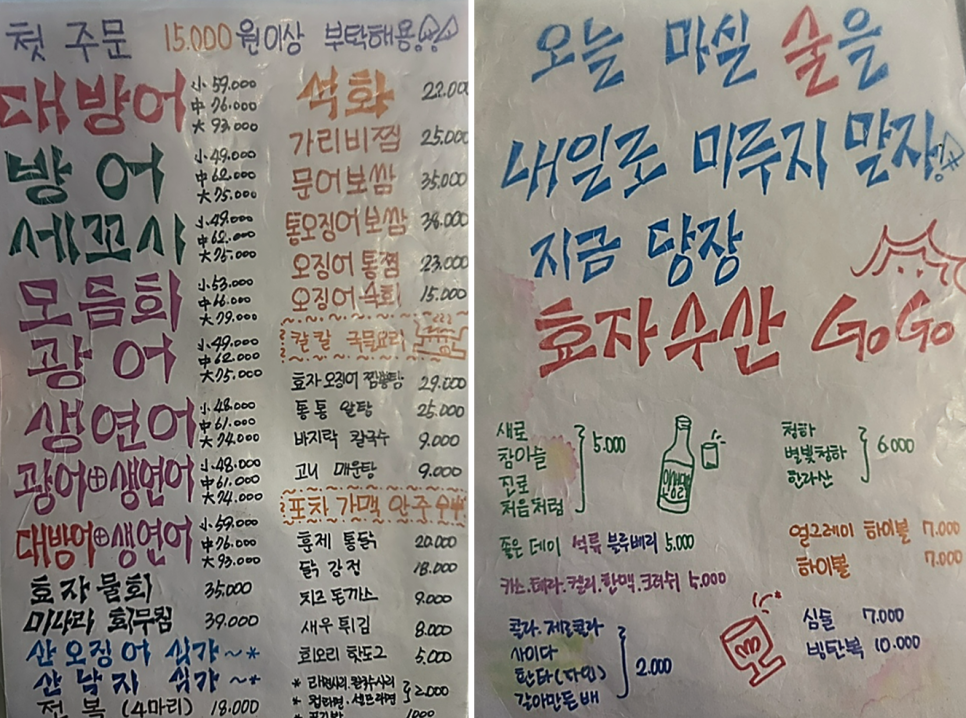 첫 주문 15.000원이상 부탁해용
대방어 小 59.000
中 76.000
大 93.000
방어 小 49.000
中 62.000
大 75.000
세꼬시 小 49.000
中 62.000
大 75.000
모듬회 小 53.000
中 66.000
大 79.000
광어 小 49.000
中 62.000
大 75.000
생연어 小 48.000
中 61.000
大 74.000
광어⊕생연어 小 48.000
中 61.000
大 74.000
대방어⊕생연어 小 59.000
中 76.000
大 93.000
효자 물회 35.000
미나리 회무침 39.000
산 오징어 싯가~*
산 낙지 싯가~*
전복 (4마리) 18.000
석화 22.000
가리비찜 25.000
문어보쌈 35.000
통오징어보쌈 38.000
오징어통찜 23.000
오징어숙회 15.000
칼칼 국물요리
효자오징어 짬뽕탕 29.000
통통 알탕 25.000
바지락 칼국수 9.000
고니 매운탕 9.000
포차 가맥 안주
훈제 통닭 20.000
닭 강정 18.000
치즈 돈까스 9.000
새우 튀김 8.000
회오리 핫도그 5.000
* 라면사리.칼국수사리
2.000
오늘 마실 술을
내일로 미루지 말자
지금 당장
효자수산 GoGo
새로
참이슬
진로
처음처럼
5.000
청하
별빛청하
한라산
6.000
좋은데이 석류 블루베리 5.000
카스.테라.켈리.한맥.크러쉬 5.000
얼그레이 하이볼 7.000
하이볼 7.000
콜라.제로콜라
사이다
환타(파인)
갈아만든배
2.000
심술 7.000
빙탄복 10.000